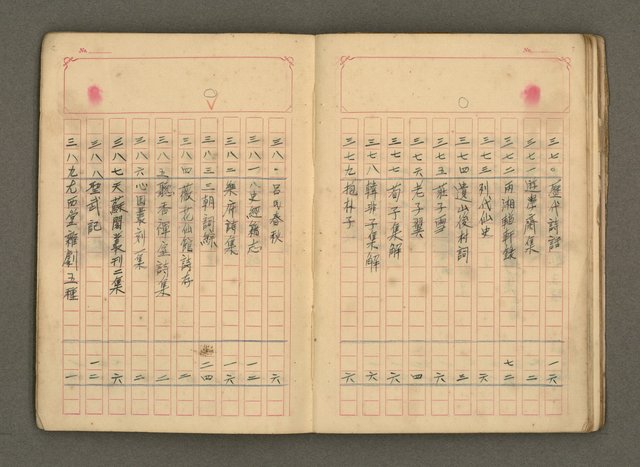 No.
三七〇歷代詩話 一六
三七一遊思齋集 二
三七二兩湘軒 七二
三七三列代仙史 六
三七四遺山後村詞 三
三七五莊子雪 六
三七六老子翼 四
三七七荀子集解 六
三七八韓非子集解 六
三七九抱朴子 六
No.
三八〇呂氏春秋 六
三八一八史經籍志 一二
三八二樂府詩集 一六
三八三三朝詞綜 二四
三八四薇花仙館詩存 二
三八五聽香禪室詩集 二
三八六心園叢刻一集 六
三八七天蘇閣叢刊二集 六
三八八聖武記 一二
三八九九西堂雜劇五種 一